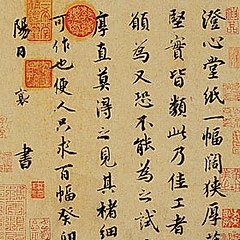 澄心堂紙一幅闊狹厚
堅實皆類此乃佳工者
願為又恐不能為之試
厚直莫得之見其楮細
可作也便人只求百幅癸卯
陽日 襄 書